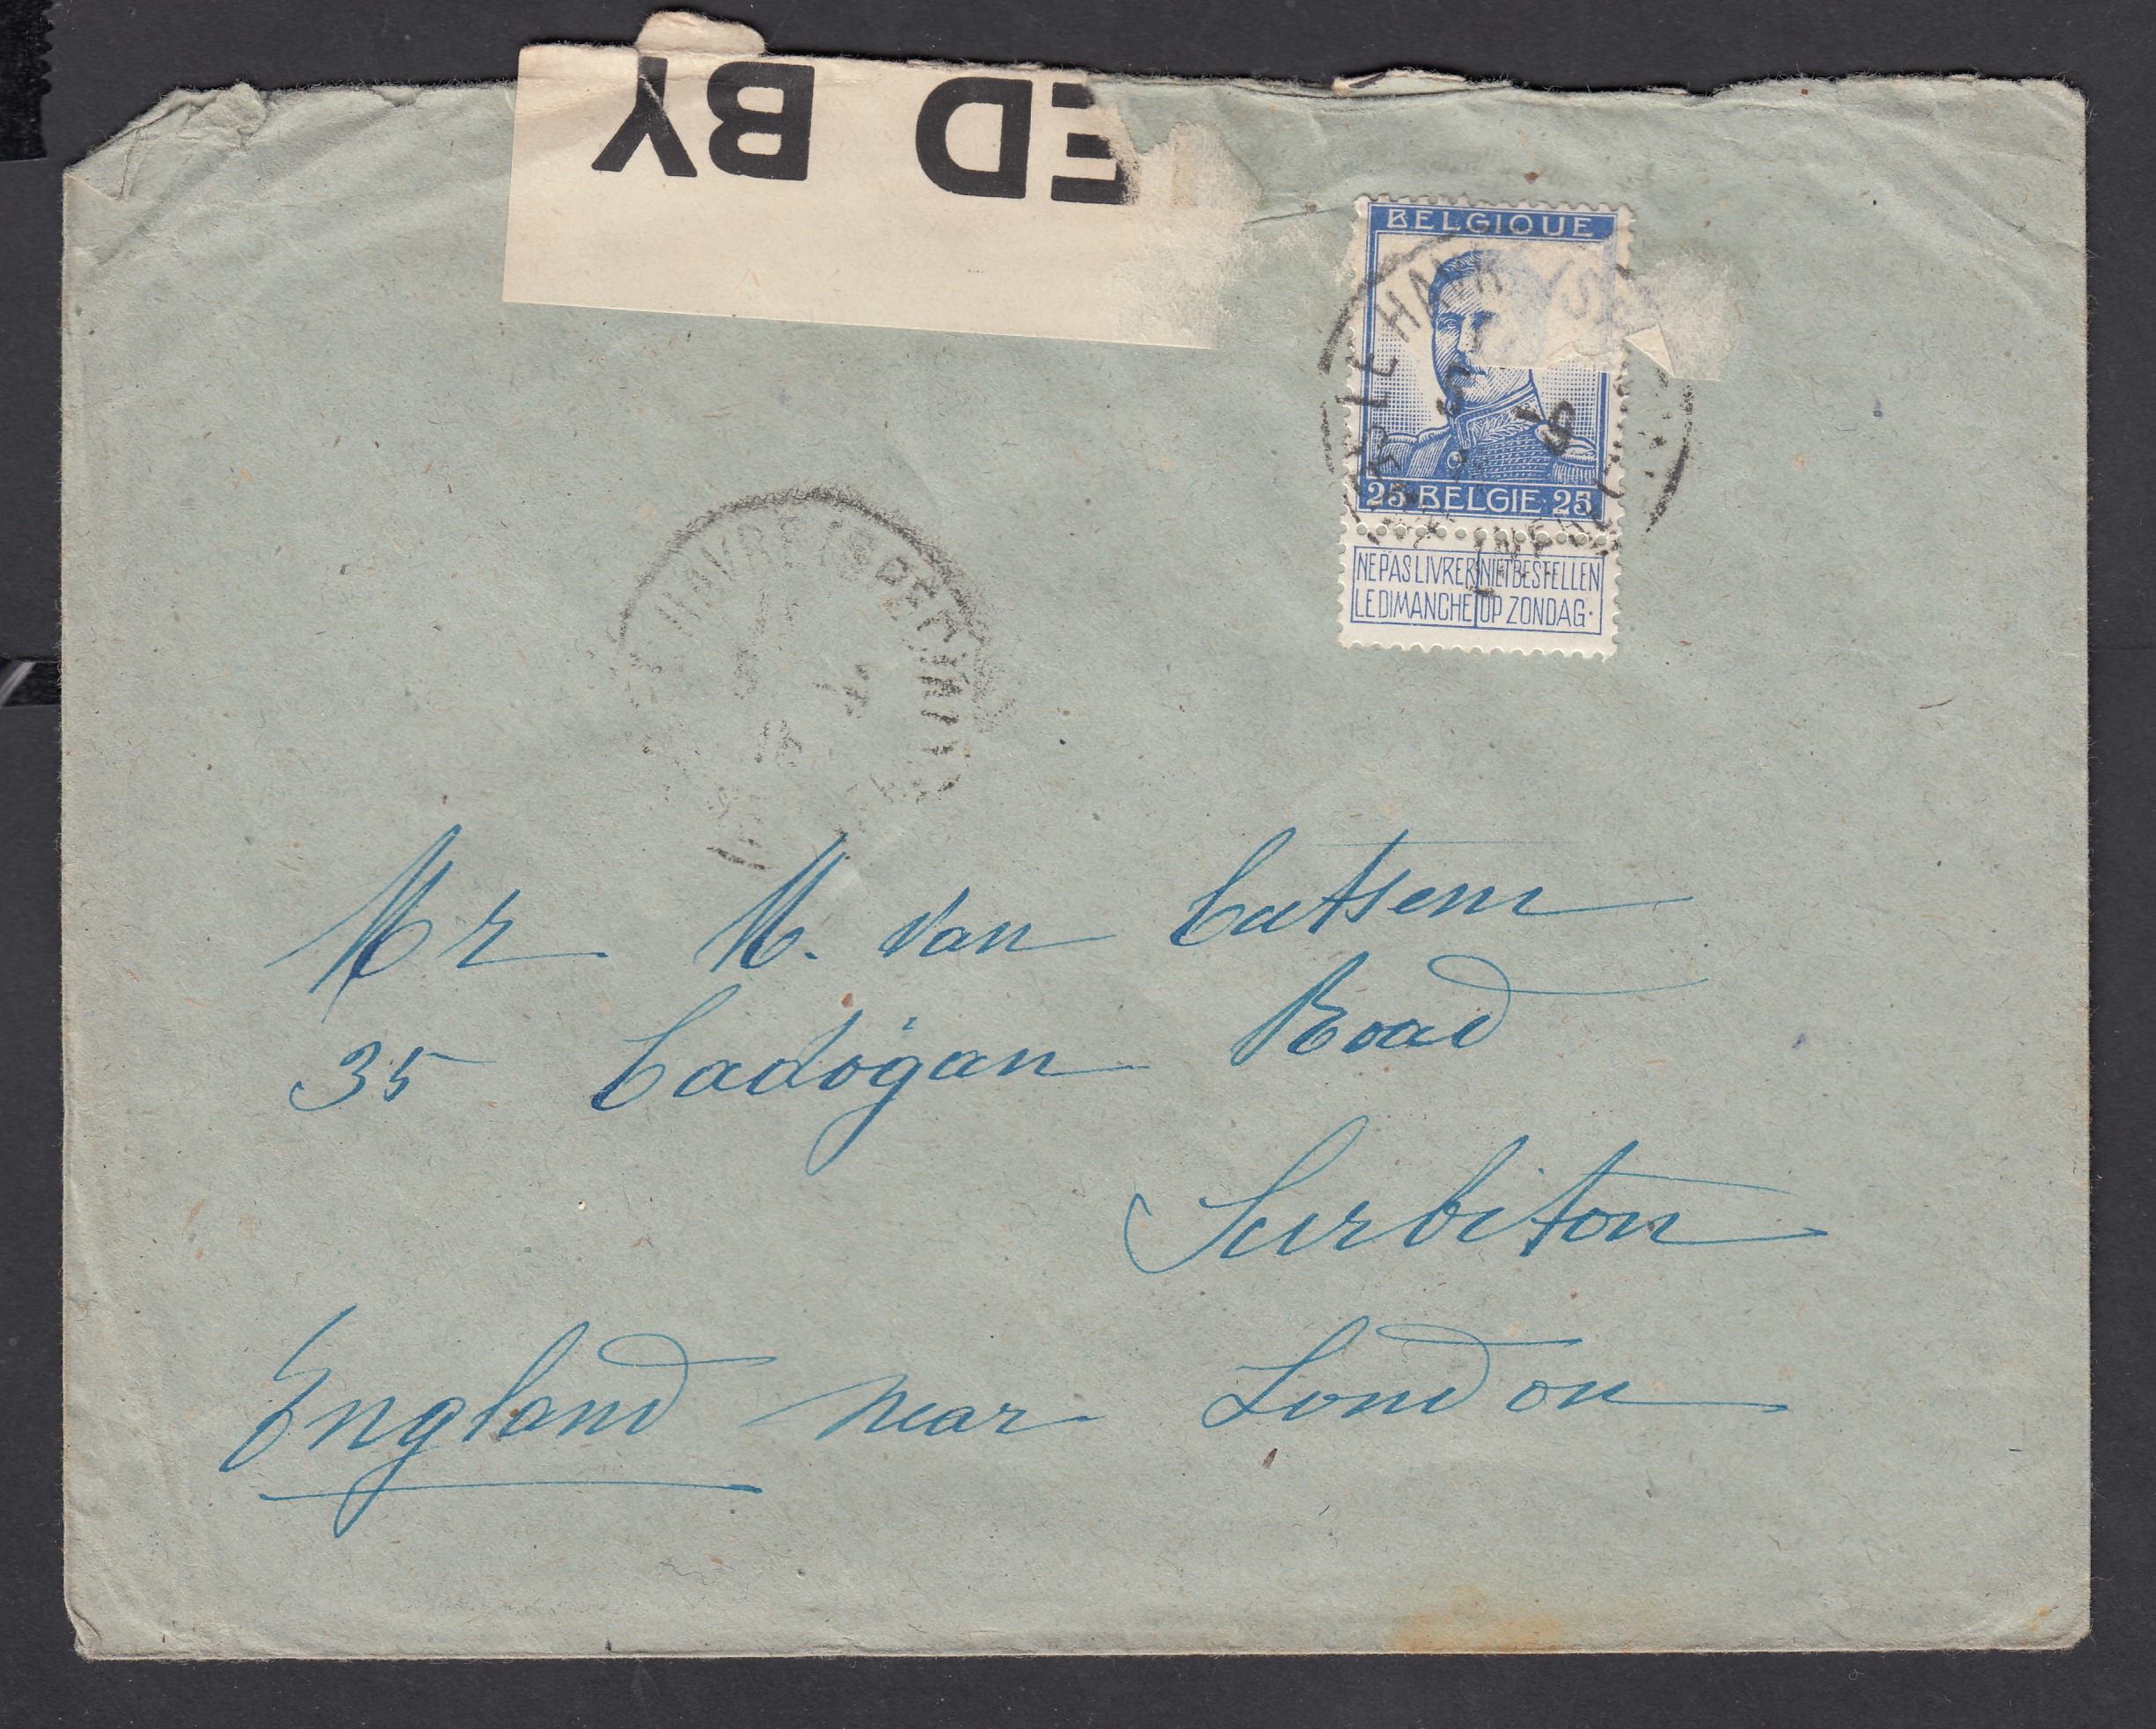 ED BY
BELGIQUE
25 BELGIE 25
NE PAS LIVRER NIET BESTELLEN
LE DIMANCHE OP ZONDAG.
LE HAVRE (SPEC
Mr M. Van Cutsem
35 Cadogan Road
Surbiton
England near London